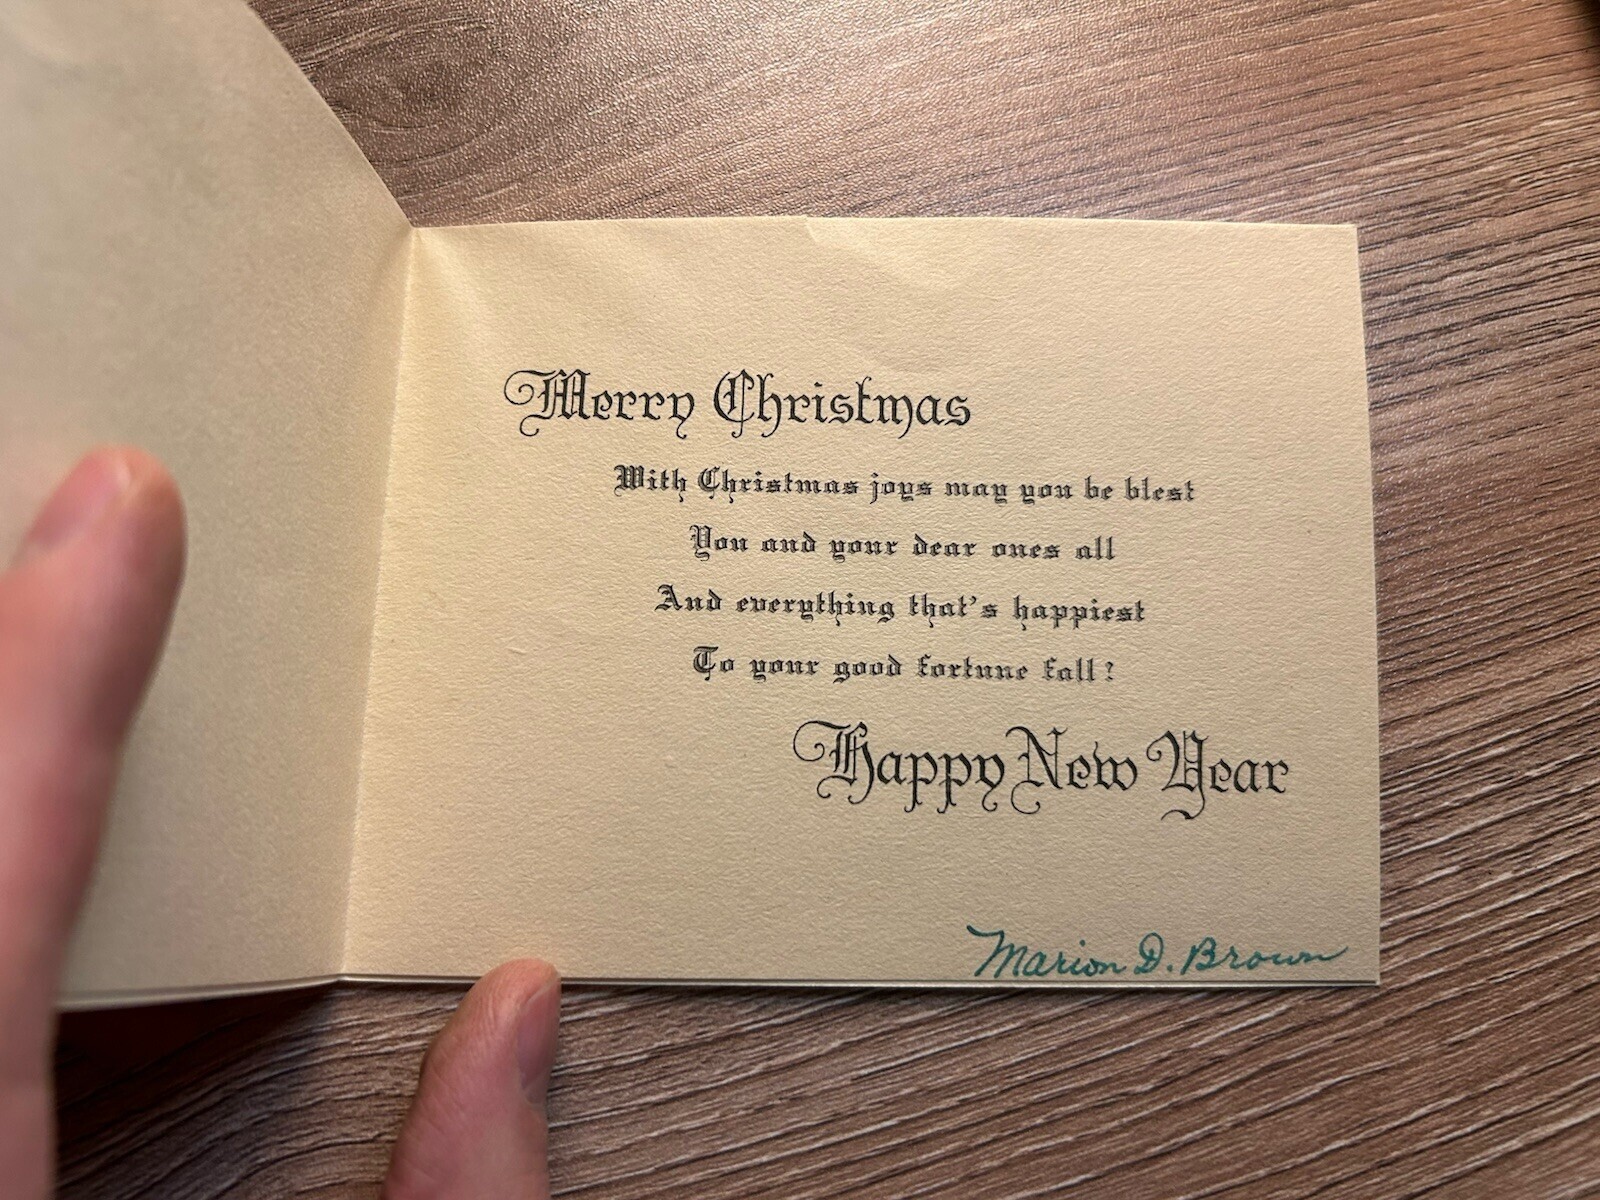 Merry Christmas
With Christmas joys may you be blest
You and your dear ones all
And everything that's happiest
To your good fortune fall!
Happy New Year
Marion D. Brown